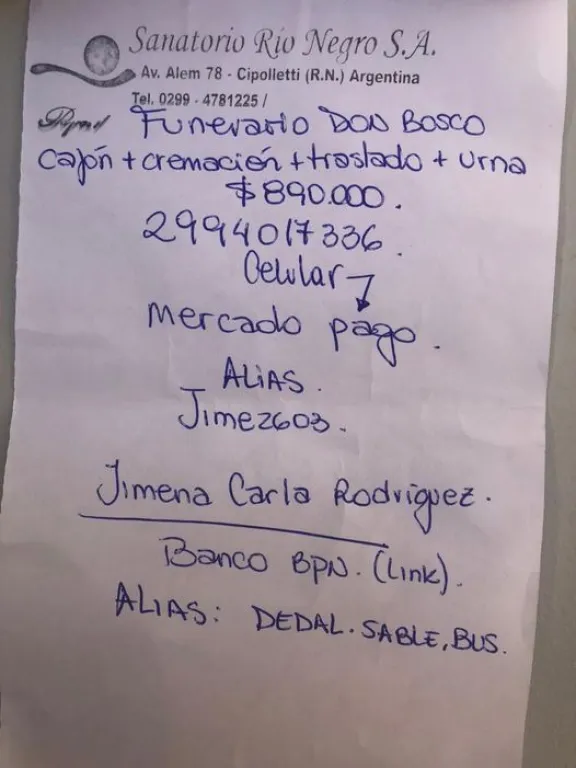 Sanatorio Río Negro S.A.
Av. Alem 78 - Cipolletti (R.N.) Argentina
Tel. 0299 - 4781225 /
Funerario DON BOSCO
Cajón + cremación + traslado + urna
$ 890.000.
2994017336.
Celular
mercado pago.
ALIAS.
Jime2603.
Jimena Carla Rodriguez.
Banco BPN. (Link).
ALIAS: DEDAL.SABLE,BUS.